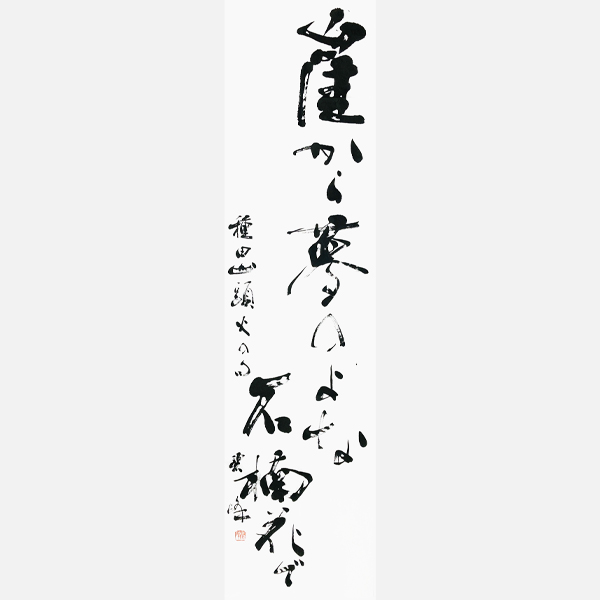 崖から夢のよな
石楠花で
種田山頭火の句